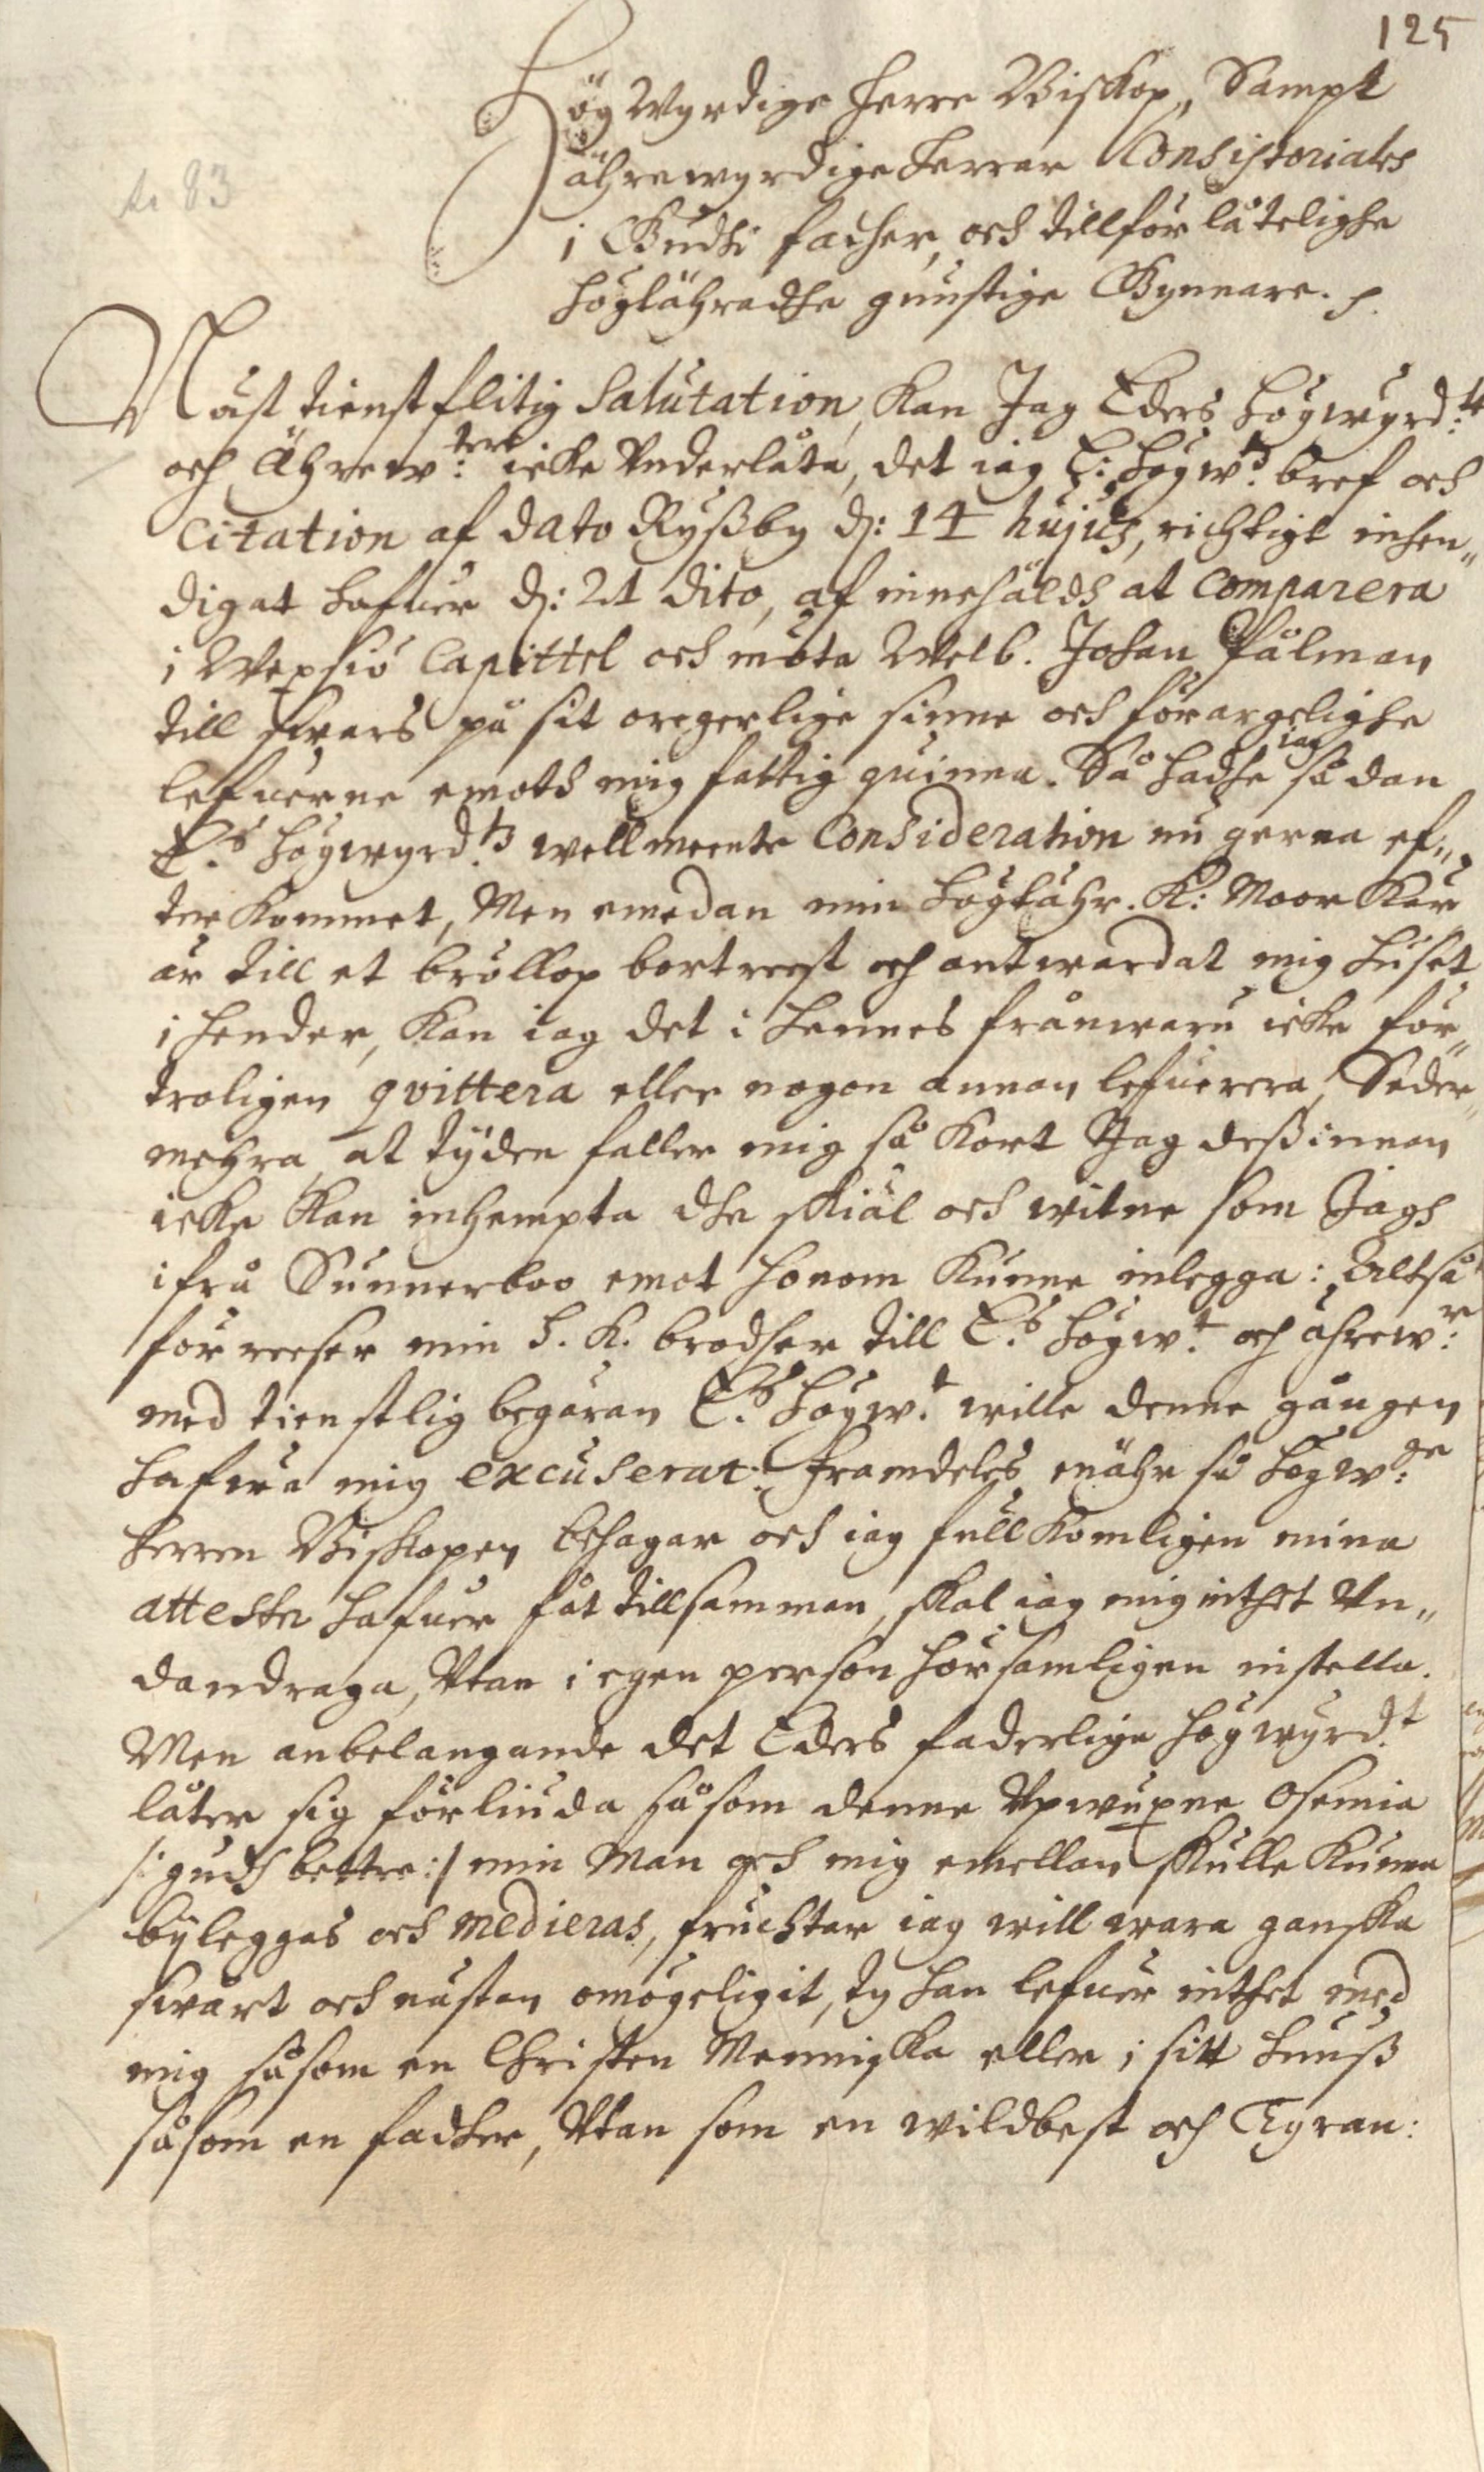 125
Hög Wyrdige Herre Biskop, Sampt
ährewyrdige Herrar Consistoriales
i Gudhi fadher, och tillförlåtelighe
höglähradhe gunstige Gynnare. p.
83
Näst tienstflitig Salutation, kan Jag Eders högwyrd:tt
och Ährew:ter icke Underlåta, det iag E: Högw:ts bref och
Citation af dato Ryßby d: 14 hujus, richtigt inhen„
digat hafuer d: 21 dito, af innehåldh at Comparera
i Wexsiö Capittel och möta Welb. Johan Pålman
till swars på sit oregerlige sinne och förargelighe
lefuerne emoth mig fattig quinna. Så hadhe iag sådan
E:s högwyrd:ts wellmeente Consideration nu gerna ef„
ter kommet, Men emedan min höglähr. K: Moor Kär
är till et bröllop bortreest och antwardat mig huset
i hender, kan iag det i hennes frånwaru icke för„
troligen qvittera eller nogon annan lefuerera, Seder„
mehra, at tijden faller mig så kort Jag deßinnan
icke kan inhempta dhe skiäl och witne som Jagh
ifrå Sunnerboo emot honom kunne inlegga: Altså
för reeser min h. K. brodher till E:s högw:t och ährew:r
med tienstlig begäran E:s Högw:t wille denne gången
hafwa mig excuserat: Framdeles, nähr så högw:ge
Herren Biskopen behagar och iag fullkomligen mina
attester hafuer fåt tillsamman, skal iag mig inthet Un„
dandraga, Utan i egen person hörsamligen instella.
Men anbelangande det Eders faderlige högwyrd:t
låter sig förliuda såsom denne Upwuxne Osemia
/: gudh bettre:/ min Man och mig emellan skulle kunna
byleggas och medieras, fruchtar iag will wara ganska
swårt och nästan omögeligit, ty han lefuer inthet med
mig såsom en Christen Menniska eller i sitt huuß
såsom en fadher, Utan som en wildbest och Tyran: